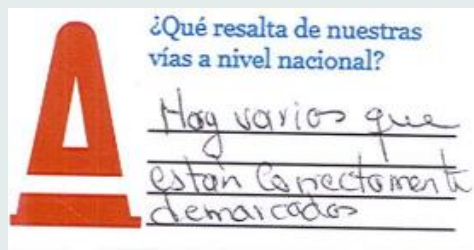 ¿Qué resalta de nuestras
vías a nivel nacional?
Hay varios que
estan correctamente
demarcados